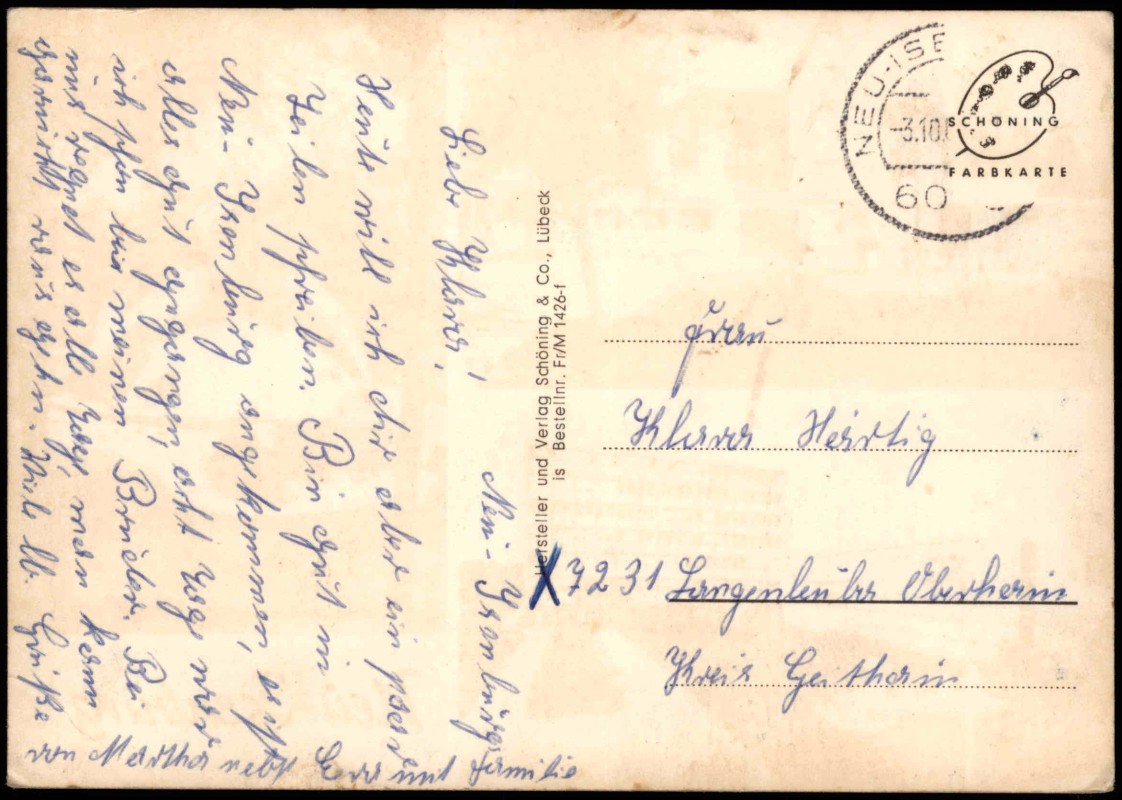 Neu-Isenburg
Liebe Klara!
Heute will ich dir aber ein paar
Zeilen schreiben. Bin gut in
Neu-Isenburg angekommen, es ist
alles gut gegangen, acht Tage war
ich schon bei meinen Bruder. Bei
uns regnet es alle Tage, man kann
garnicht raus gehn. Viele lb. Grüße
von Martha nebst mit Familie
Hersteller und Verlag Schöning & Co., Lübeck
is Bestellnr. Fr/M 1426-f
NEU-ISE
-3.10.
60
SCHÖNING
FARBKARTE
Frau
Klara Härtig
X 7231 Langenleuba Oberhain
Kreis Geithain